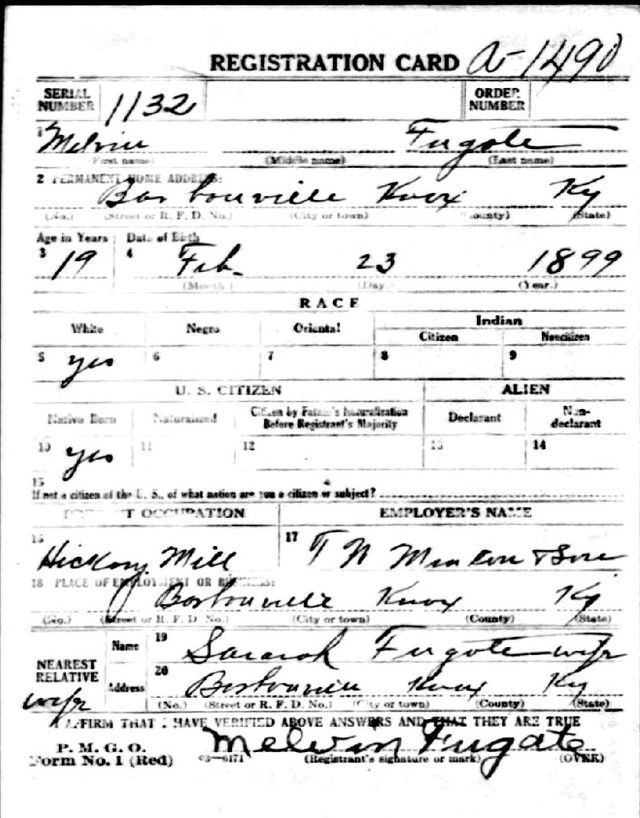 REGISTRATION CARD A-1490
SERIAL NUMBER 1132 ORDER NUMBER
1 Melvin Fugate
(First name) (Middle name) (Last name)
2 PERMANENT HOME ADDRESS:
Barbourville Knox Ky
(No.) (Street or R. F. D. No.) (City or town) (County) (State)
Age in Years Date of Birth
3 19 4 Feb. 23 1899
(Month) (Day) (Year.)
RACE
White Negro Oriental Indian
Citizen Noncitizen
5 yes 6 7 8 9
U. S. CITIZEN ALIEN
Native Born Naturalized Citizen by Father's Naturalization Before Registrant's Majority Declarant Non-declarant
10 yes 11 12 13 14
15
If not a citizen of the U. S., of what nation are you a citizen or subject?
PRESENT OCCUPATION EMPLOYER'S NAME
16 Hickory Mill 17 T W Minton & Son
18 PLACE OF EMPLOYMENT OR BUSINESS:
Borbouville Knox Ky
(No.) (Street or R. F. D. No.) (City or town) (County) (State)
NEAREST RELATIVE Name 19 Sarah Fugate wife
wife Address 20 Borbouville Knox Ky
(No.) (Street or R. F. D. No.) (City or town) (County) (State)
I AFFIRM THAT I HAVE VERIFIED ABOVE ANSWERS AND THAT THEY ARE TRUE
P. M. G. O.
Form No. 1 (Red) 03-6171 Melvin Fugate
(Registrant's signature or mark) (OVER)